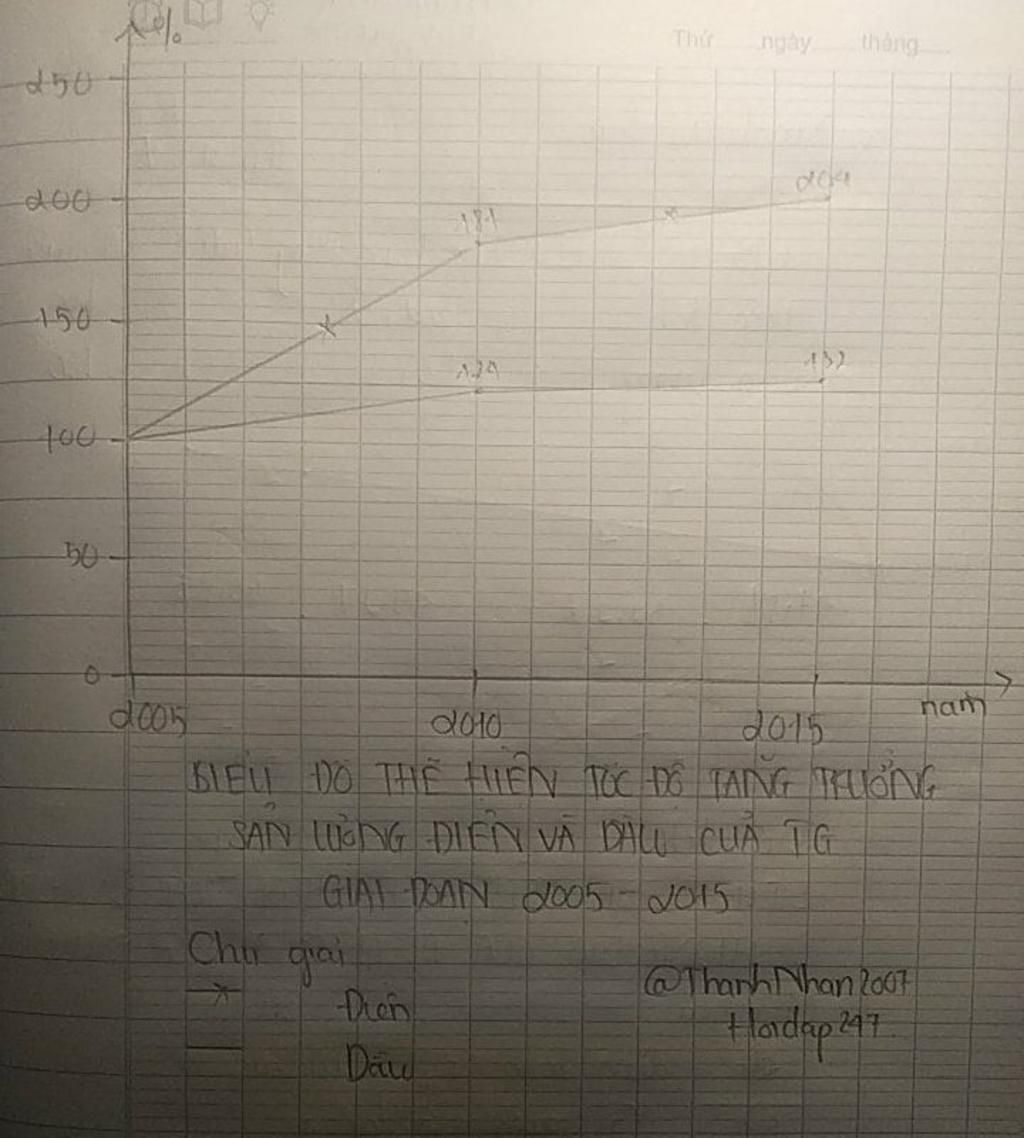 %
Thứ ngày tháng
250
200
204
181
150
129
132
100
50
0
2005 2010 2015 năm
BIỂU ĐỒ THỂ HIỆN TỐC ĐỘ TĂNG TRƯỞNG
SẢN LƯỢNG ĐIỆN VÀ DẦU CỦA TG
GIAI ĐOẠN 2005 - 2015
Chú giải
Điện
Dầu
@ThanhNhan2007
Hoidap247